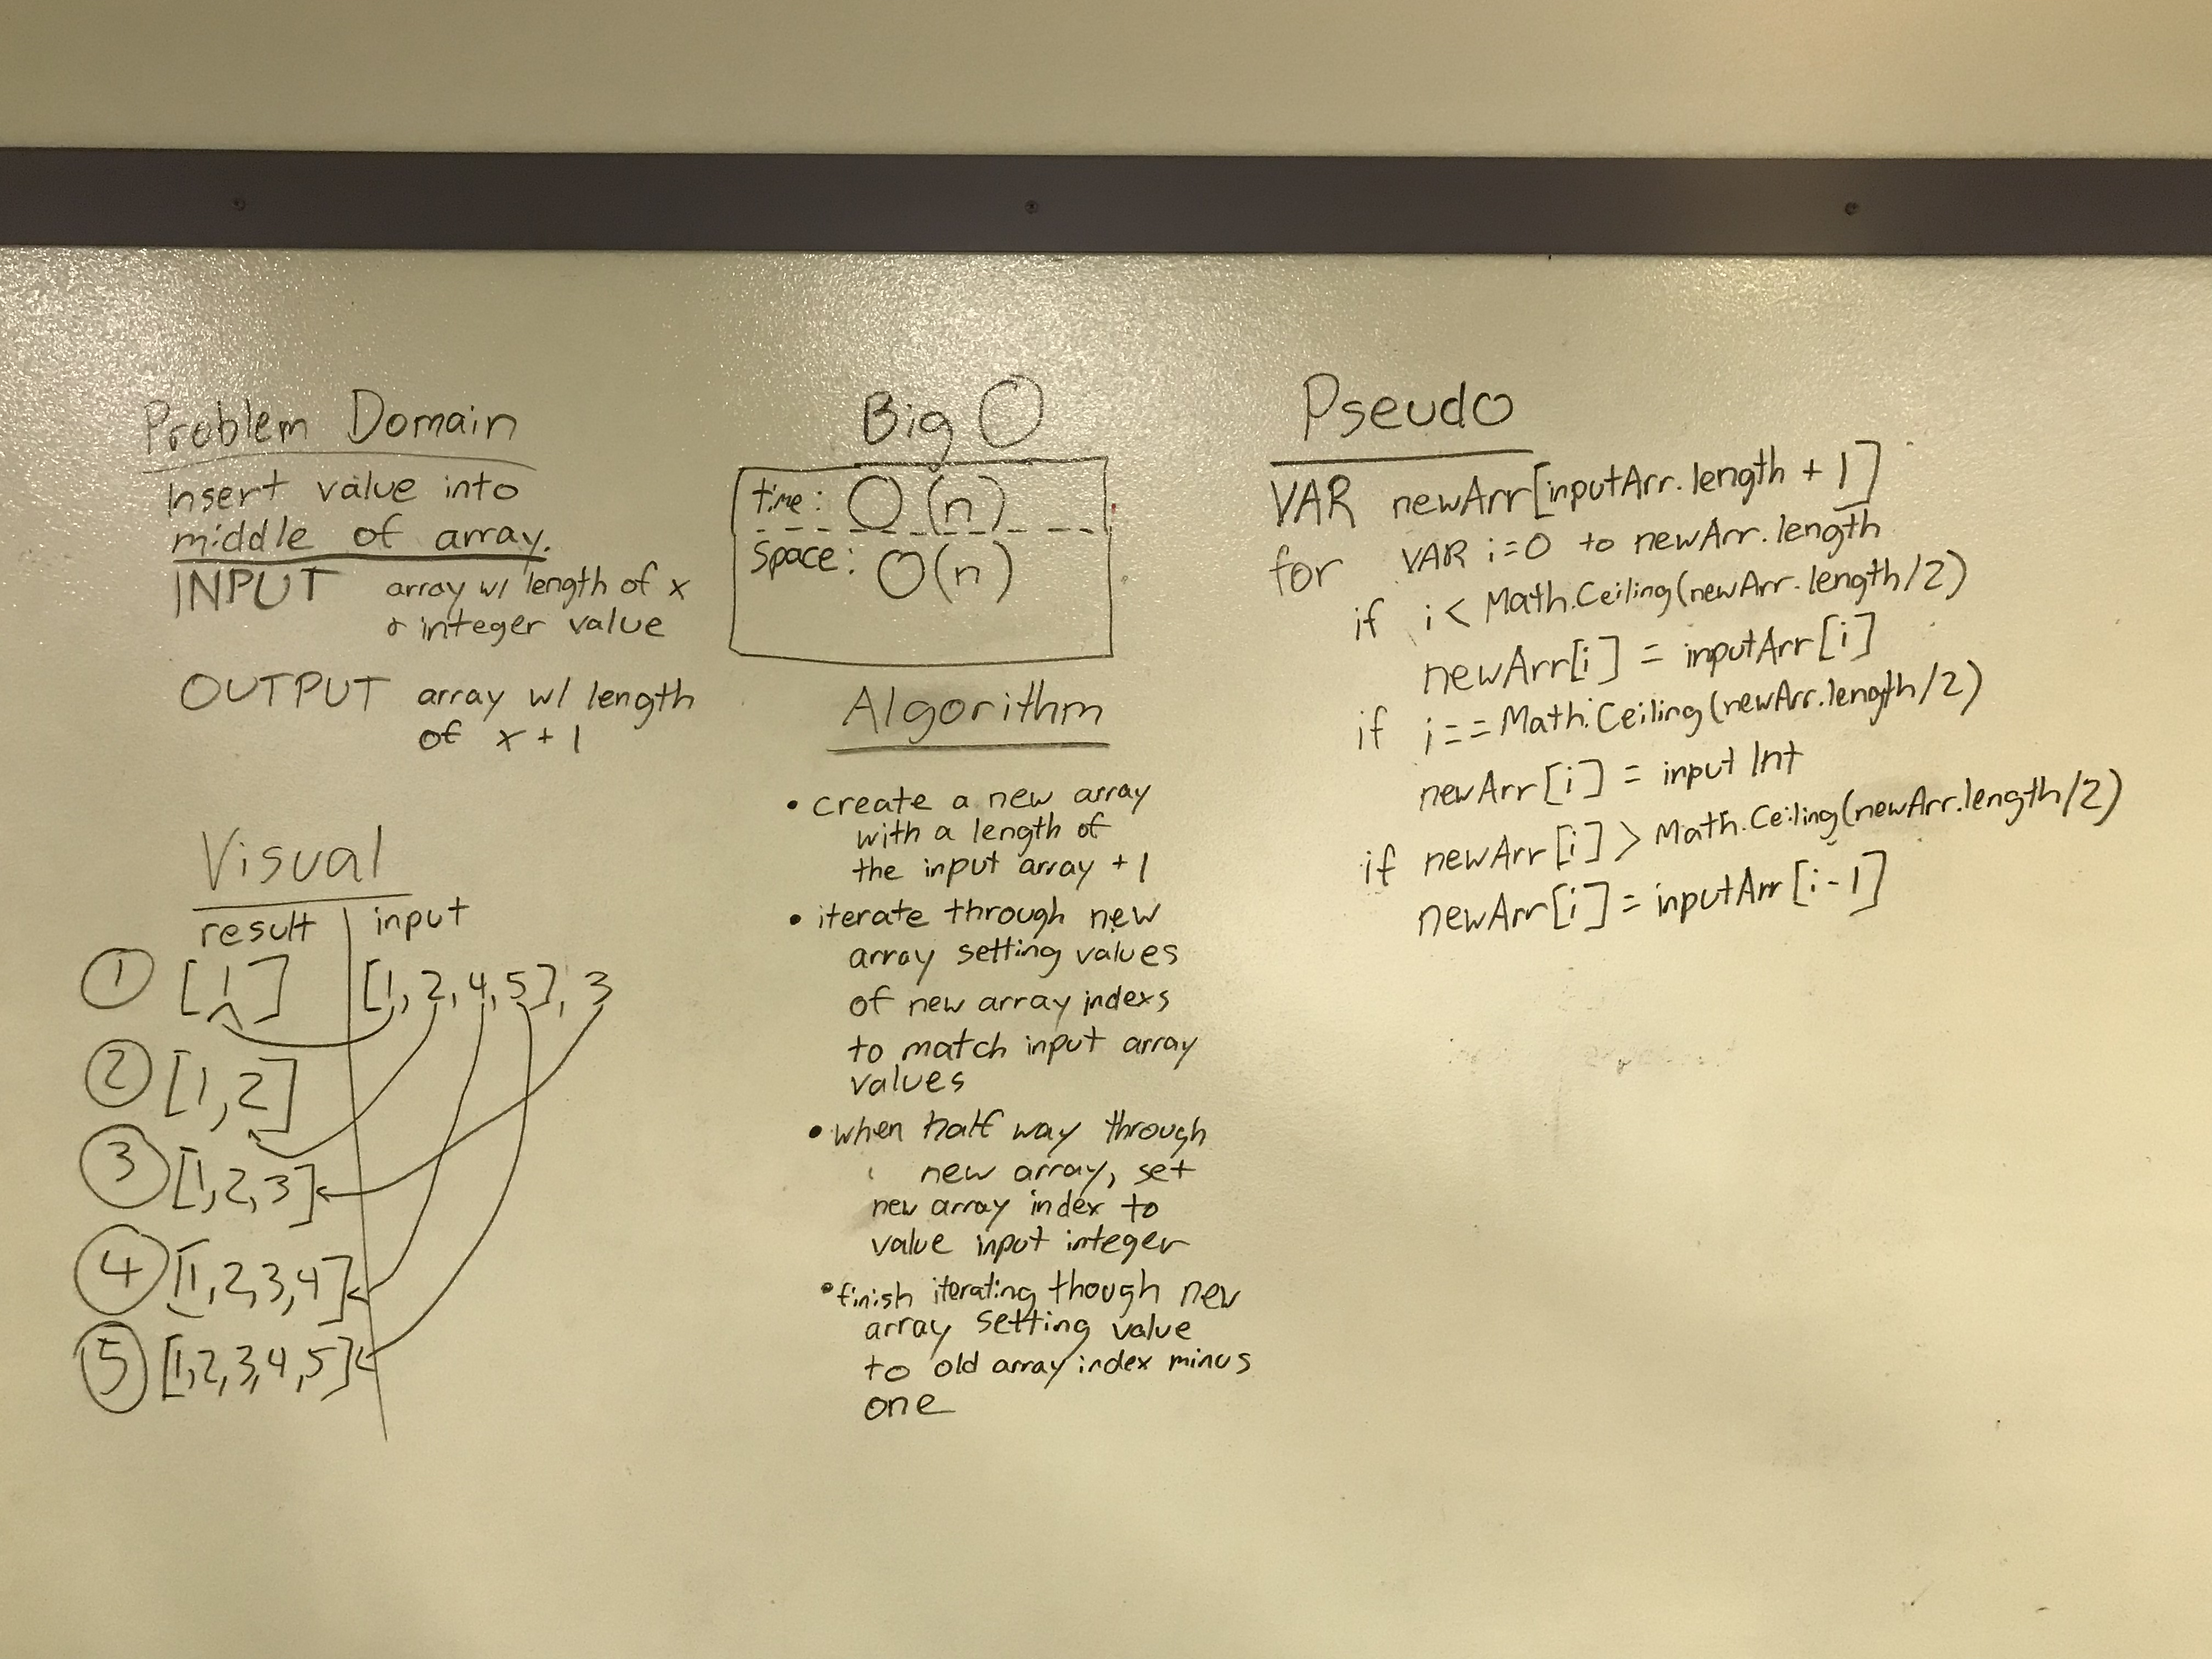 Problem Domain
Insert value into
middle of array.
INPUT array w/ length of x
& integer value
OUTPUT array w/ length
of x + 1
Visual
result | input
① [1] [1, 2, 4, 5], 3
② [1, 2]
③ [1, 2, 3]
④ [1, 2, 3, 4]
⑤ [1, 2, 3, 4, 5]
Big O
time: O(n)
Space: O(n)
Algorithm
• create a new array
with a length of
the input array + 1
• iterate through new
array setting values
of new array indexs
to match input array
values
• when half way through
new array, set
new array index to
value input integer
• finish iterating though new
array setting value
to old array index minus
one
Pseudo
VAR newArr[inputArr.length + 1]
for VAR i=0 to newArr.length
if i < Math.Ceiling(newArr.length/2)
newArr[i] = inputArr[i]
if i == Math.Ceiling(newArr.length/2)
newArr[i] = input Int
if newArr[i] > Math.Ceiling(newArr.length/2)
newArr[i] = inputArr[i-1]